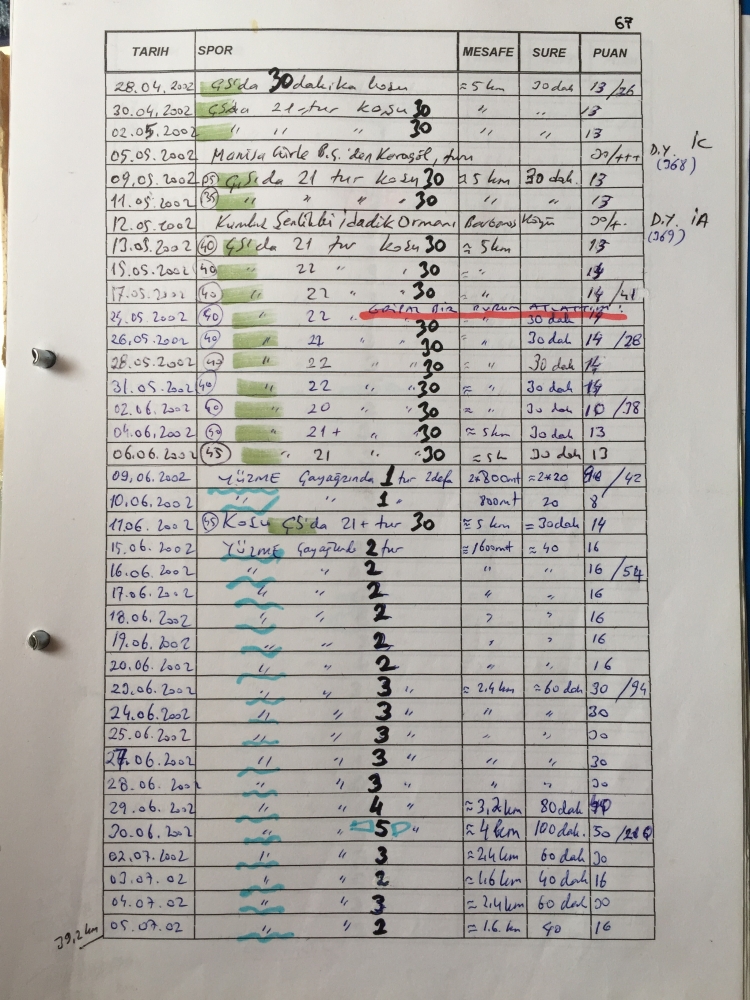 67
TARIH SPOR MESAFE SURE PUAN
28.04.2002 ÇS'da 30 dakika koşu ≈5km 30 dak 13/26
30.04.2002 ÇS'da 21+tur koşu 30 " " 13
02.05.2002 " " " 30 " " 13
05.05.2002 Manisa B.Ş.'den Karagöl, turu 30/+++ D.Y. (368)
09.05.2002 35 ÇS'da 21 tur koşu 30 ≈5km 30 dak. 13
11.05.2002 35 " " " " 30 " " 13
12.05.2002 Şenlikli Ormanı Barbaros Köyü 30/+. D.Y. İA (369)
13.05.2002 40 ÇS'da 21 tur koşu 30 ≈5km 13
15.05.2002 40 " 22 " " 30 = " 14
17.05.2002 40 " 22 " 30 14/41
GRİBAL BİR DURUM ATLATTIM!
24.05.2002 40 " 22 " 30 " 30 dak 14
26.05.2002 40 " 22 " " 30 " 30 dak 14/28
28.05.2002 40 " 22 " " 30 = " 30 dak 14
31.05.2002 40 " 22 " " 30 ≈ " 30 dak 14
02.06.2002 40 " 20 " " 30 ≈ " 30 dak 10/38
04.06.2002 40 " 21+ " " 30 ≈5km 30 dak 13
06.06.2002 45 " 21 " " 30 ≈5k 30 dak 13
09.06.2002 YÜZME Çayağzında 1 tur 2defa 2*800mt ≈2*20 /42
10.06.2002 " " 1 " 800mt 20 8
11.06.2002 45 Koşu ÇS'da 21+ tur 30 ≈5km =30dak 14
15.06.2002 YÜZME Çayağzında 2 tur ≈1600mt ≈40 16
16.06.2002 " " 2 " " 16/54
17.06.2002 " " 2 " " 16
18.06.2002 " " 2 " " 16
19.06.2002 " " 2 " " 16
20.06.2002 " " 2 " " 16
23.06.2002 " " 3 " ≈2,4km ≈60 dak 30/94
24.06.2002 " " 3 " " " 30
25.06.2002 " " 3 " " " 30
27.06.2002 " " 3 " " " 30
28.06.2002 " " 3 " " " 30
29.06.2002 " " 4 " ≈3,2km 80 dak
30.06.2002 " " 5 " ≈4km 100dak. 50/210
02.07.2002 " " 3 ≈2,4km 60 dak 30
03.07.02 " " 2 ≈1,6km 40 dak 16
04.07.02 " " 3 ≈2,4km 60 dak 30
05.07.02 " " 2 ≈1.6.km 40 16
39,2 km